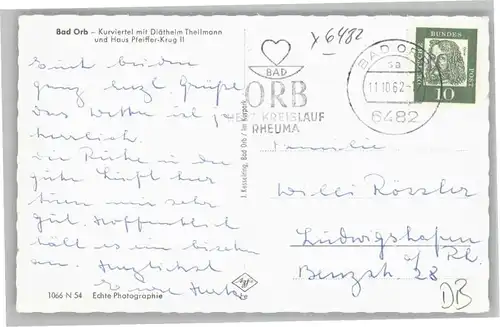 Bad Orb – Kurviertel mit Diätheim Theilmann
und Haus Pfeiffer-Krug II
x 6482
Euch beiden
ganz herzl. Grüße
Das Wetter ist ja
herrlich.
Die Ruhe in der
gute Luft hier
tun mir sehr
gut. Hoffentlich
hält es ein bischen
an. Herzlichst
Eure
1066 N 54 Echte Photographie
J. Kesselring, Bad Orb / Im Kurpark
BAD
ORB
HERZ KREISLAUF
RHEUMA
BAD ORB
11.10.62
6482
DEUTSCHE
BUNDES
POST
10
Familie
Willi Rössler
Ludwigshafen
a/Rh.
Benzstr. 28
DB